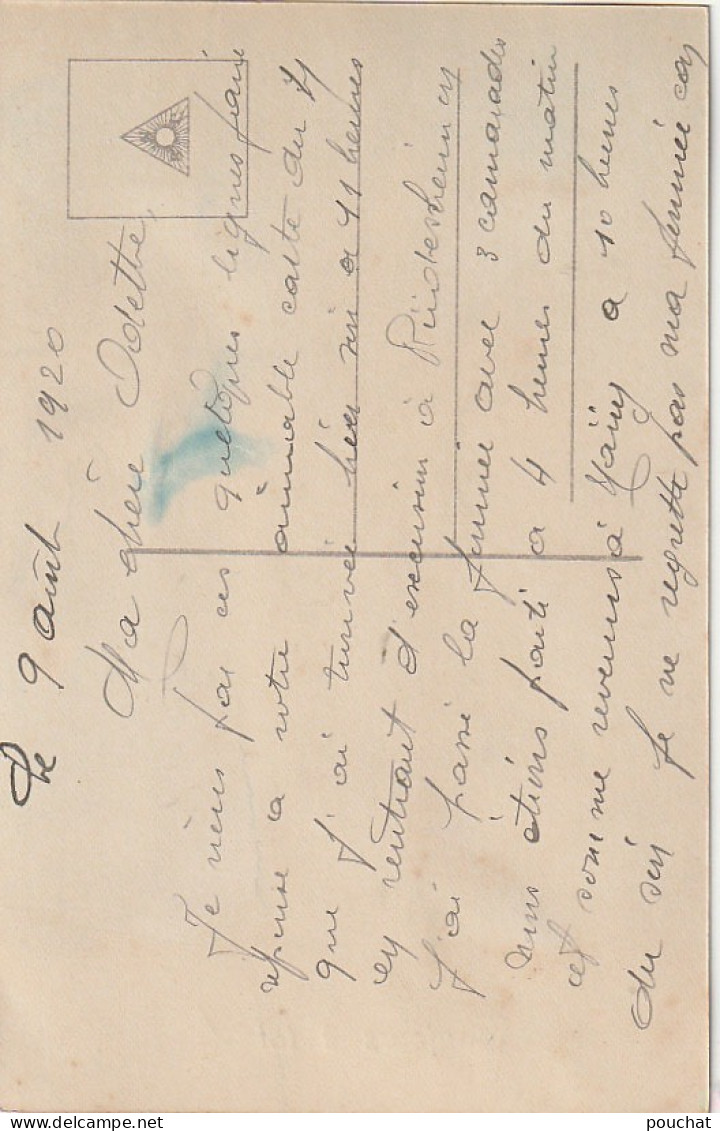 Le 9 août 1920
Ma chère Odette,
Je viens par ces quelques lignes faire
réponse a votre aimable carte du 7
que j'ai trouvée hier soir a 11 heures
en rentrant d'excursion à Rüdesheim
j'ai passé la journée avec 3 camarades
nous étions parti a 4 heures du matin
et somme revenus à Mainz a 10 heures
du soir je ne regrette pas ma journée car
pouchat